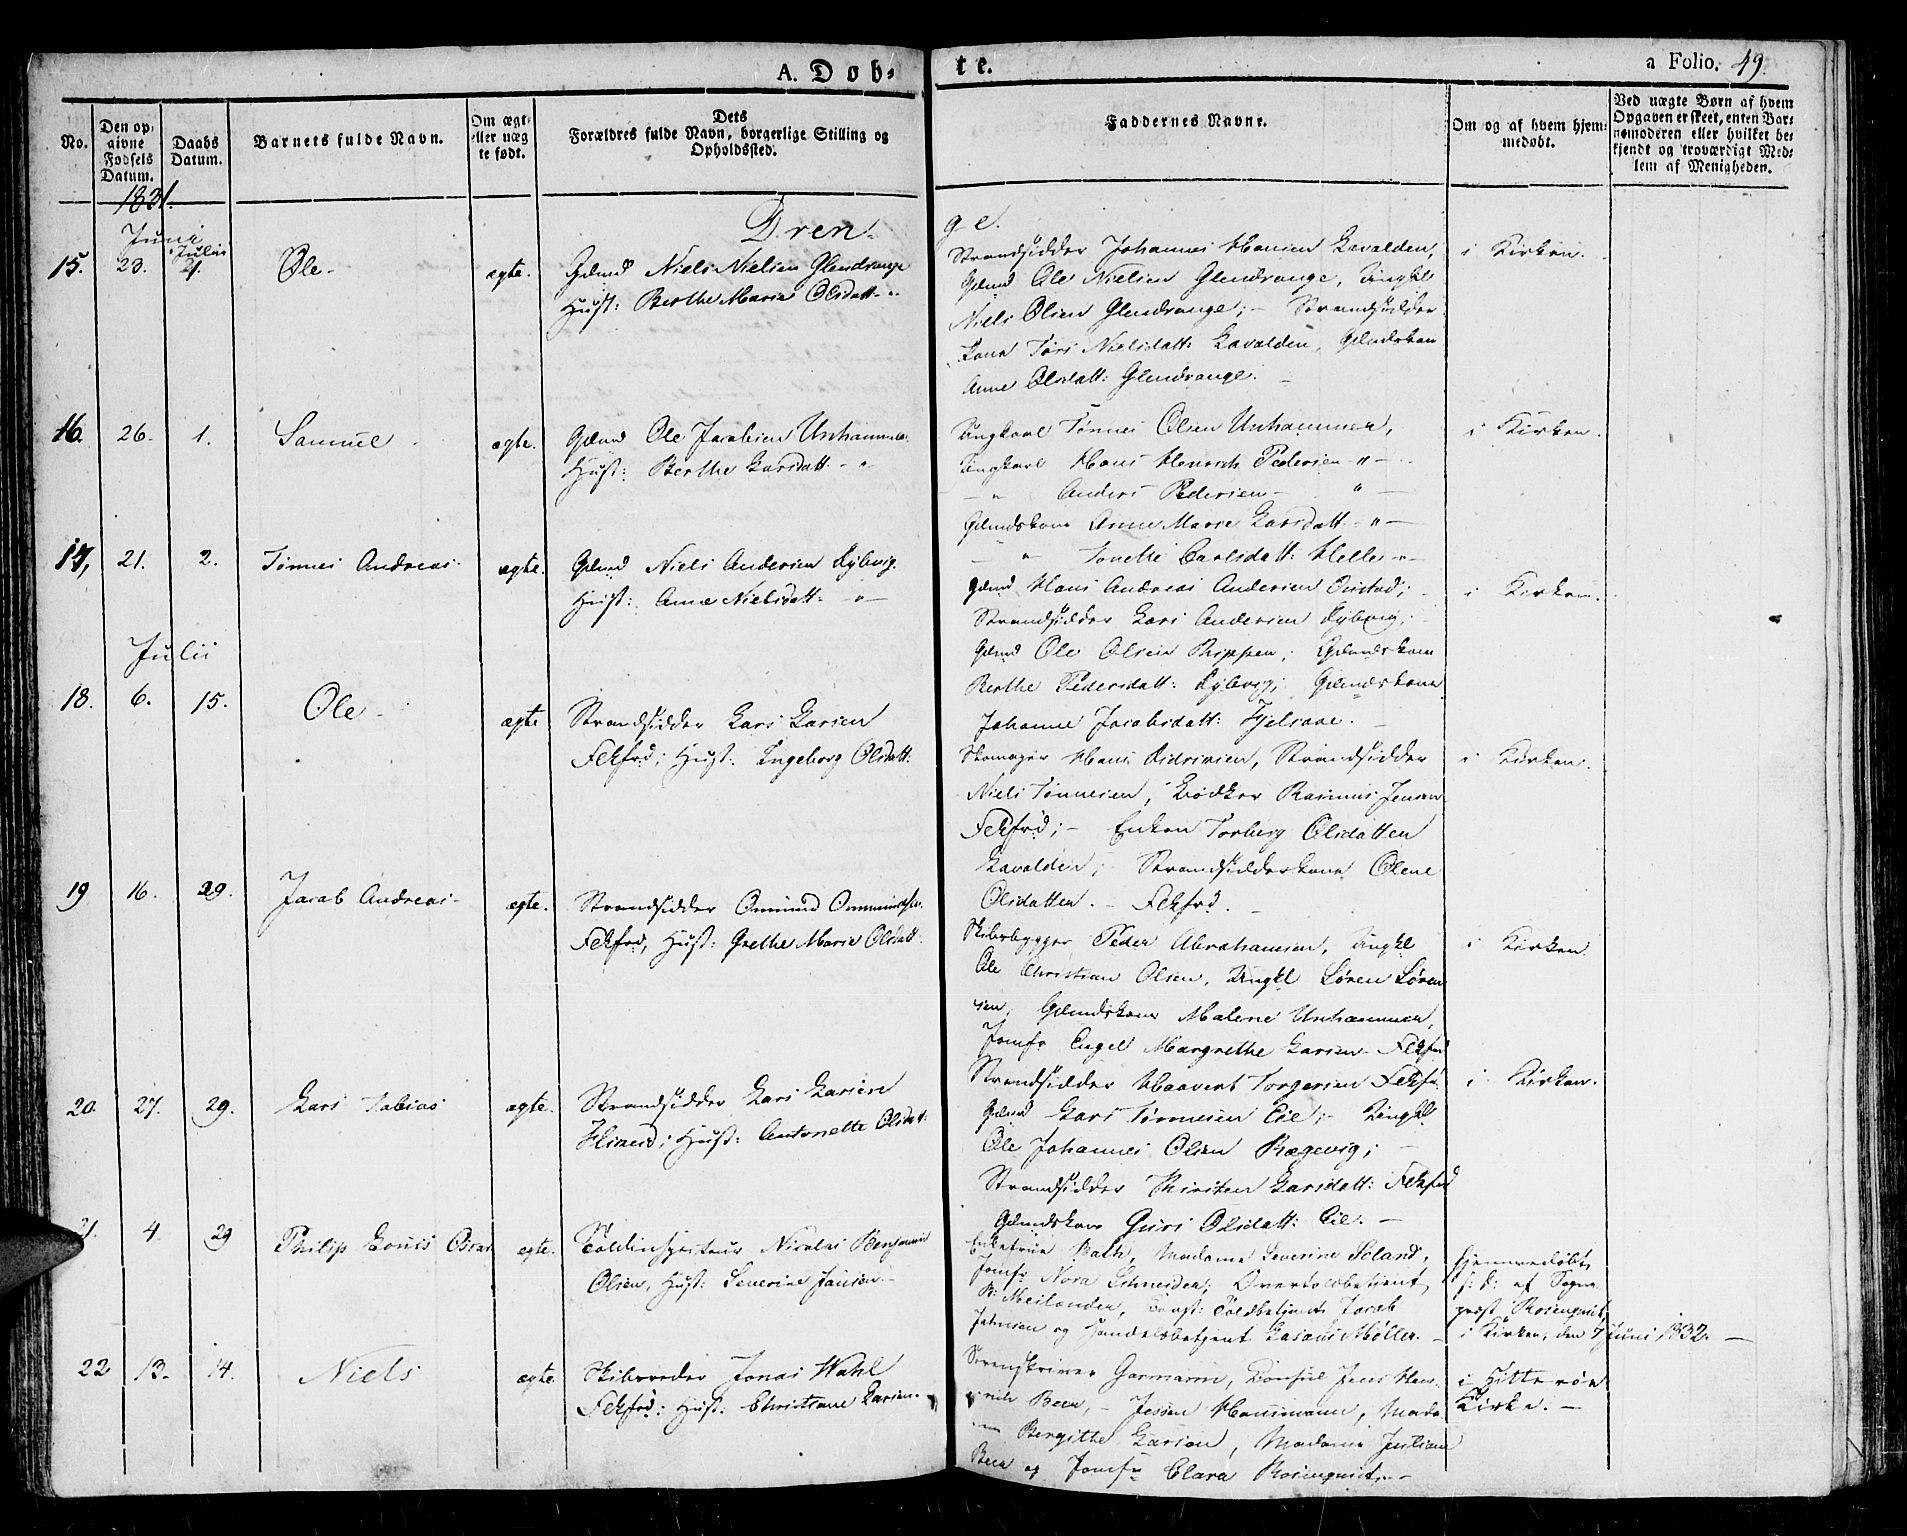 A. Døb-
te.
a Folio. 49.
No.
Den op-
givne
Fødsels
Datum.
Daabs
Datum.
Barnets fulde Navn.
Om ægt-
eller uæg-
te født.
Dets
Forældres fulde Navn, borgerlige Stilling og
Opholdssted.
Faddernes Navne.
Om og af hvem hjem-
medøbt.
Ved uægte Børn af hvem
Opgaven er skeet, enten Bar-
nemoderen eller hvilket be-
kjendt og troværdigt Med-
lem af Menigheden.
1831.
Dren-
ge.
Juni
Julii
15. 23. 21. Ole ægte. Gdmd Niels Nielsen Glendrange
Hust: Berthe Marie Olsdatt -"-
Strandsidder Johannes Hansen Lavolden,
Gdmd Ole Nielsen Glendrange, Ungkl
Niels Olsen Glendrange; - Strandsidder
kone Tøri Nielsdatt: Lavolden, Gdmdskone
Anne Olsdatt: Glendrange. -
i Kirken.
16. 26. 1. Samuel ægte. Gdmd Ole Jacobsen Unhammer
Hust: Berthe Larsdatt. -"-
Ungkarl Tønnes Olsen Unhammer,
Ungkarl Hans Henrich Pedersen -"-
-"- Anders Pedersen - "-
Gdmdskone Anne Marie Larsdatt -"-
-"- Tonette Carlsdatt: Helle -"-
i Kirken.
17, 21. 2. Tønnes Andreas ægte. Gdmd Niels Andersen Rybvig.
Hust: Anne Nielsdatt: -"-
Gdmd Hans Andreas Andersen
Strandsidder Lars Andersen Rybvig.
Gdmd Ole Olsen; Gdmdskone
Berthe Pedersdatt: Rybvig; Gdmdskone
Johanne Jacobsdatt: Fjelsaae. -
i Kirken.
Julii
18. 6. 15. Ole ægte Strandsidder Lars Larsen
Fekfrd; Hust: Ingeborg Olsdatt:
Skomager Hans Didriksen, Strandsidder
Niels Tønnesen, Bødker Rasmus Jensen
Fekfrd; - Enken Torberg Olsdatten
Lavolden; - Strandsidderkone Olene
Olsdatten. - Fekfrd. -
i Kirken.
19 16. 29. Jacob Andreas ægte. Strandsidder Omund
Fekfrd, Hust: Grethe Marie Olsdatt:
Skibsbygger Peder Abrahamsen, Ungkl
Ole Christian Olsen, Ungkl Søren Søren
sen, Gdmdskone Malene Unhammer,
Jomfr Engel Margrethe Larsen - Fekfrd
i Kirken.
20. 27. 29. Lars Tobias ægte. Strandsidder Lars Larsen
; Hust: Antonette Olsdatt:
Strandsidder Haavert Torgersen Fekfr.
Gdmd Lars Tønnesen Eie; - Ungkl
Ole Johannes Olsen Rægevig; -
Strandsidder Kirsten Larsdatt: Fekfrd
Gdmdskone Guri Olsdatt: Eie. -
i Kirken.
21. 4 29 Philip Louis Oscar ægte. Toldinspecteur Nicolai Benjamin
Olsen, Hust: Severine Jansen -
Enkefrue Bath, Madame Severine Soland,
Jomfr Nora Schneider, Overtoldbetjent,
B: Meilænder, Const: Toldbetjent Jacob
Jahnsen og Handelsbetjent Møller. -
Hjemmedøbt
s: d: af Sogne
præst Rosenqvist
i Kirken, den 7 Juni 1832. -
22 13. 14. Niels ægte. Skibsreder Jonas Wahl
Fekfrd; Hust: Christiane Larsen -
Sorenskriver Garmann, Consul Jens Hen
rich Beer, - Jessen Hanimann, Mada
me Bergitte Larsen, Madame Juliane
Beer og Jomfr Clara Rosenqvist. -
i Hitterøe
Kirke. -